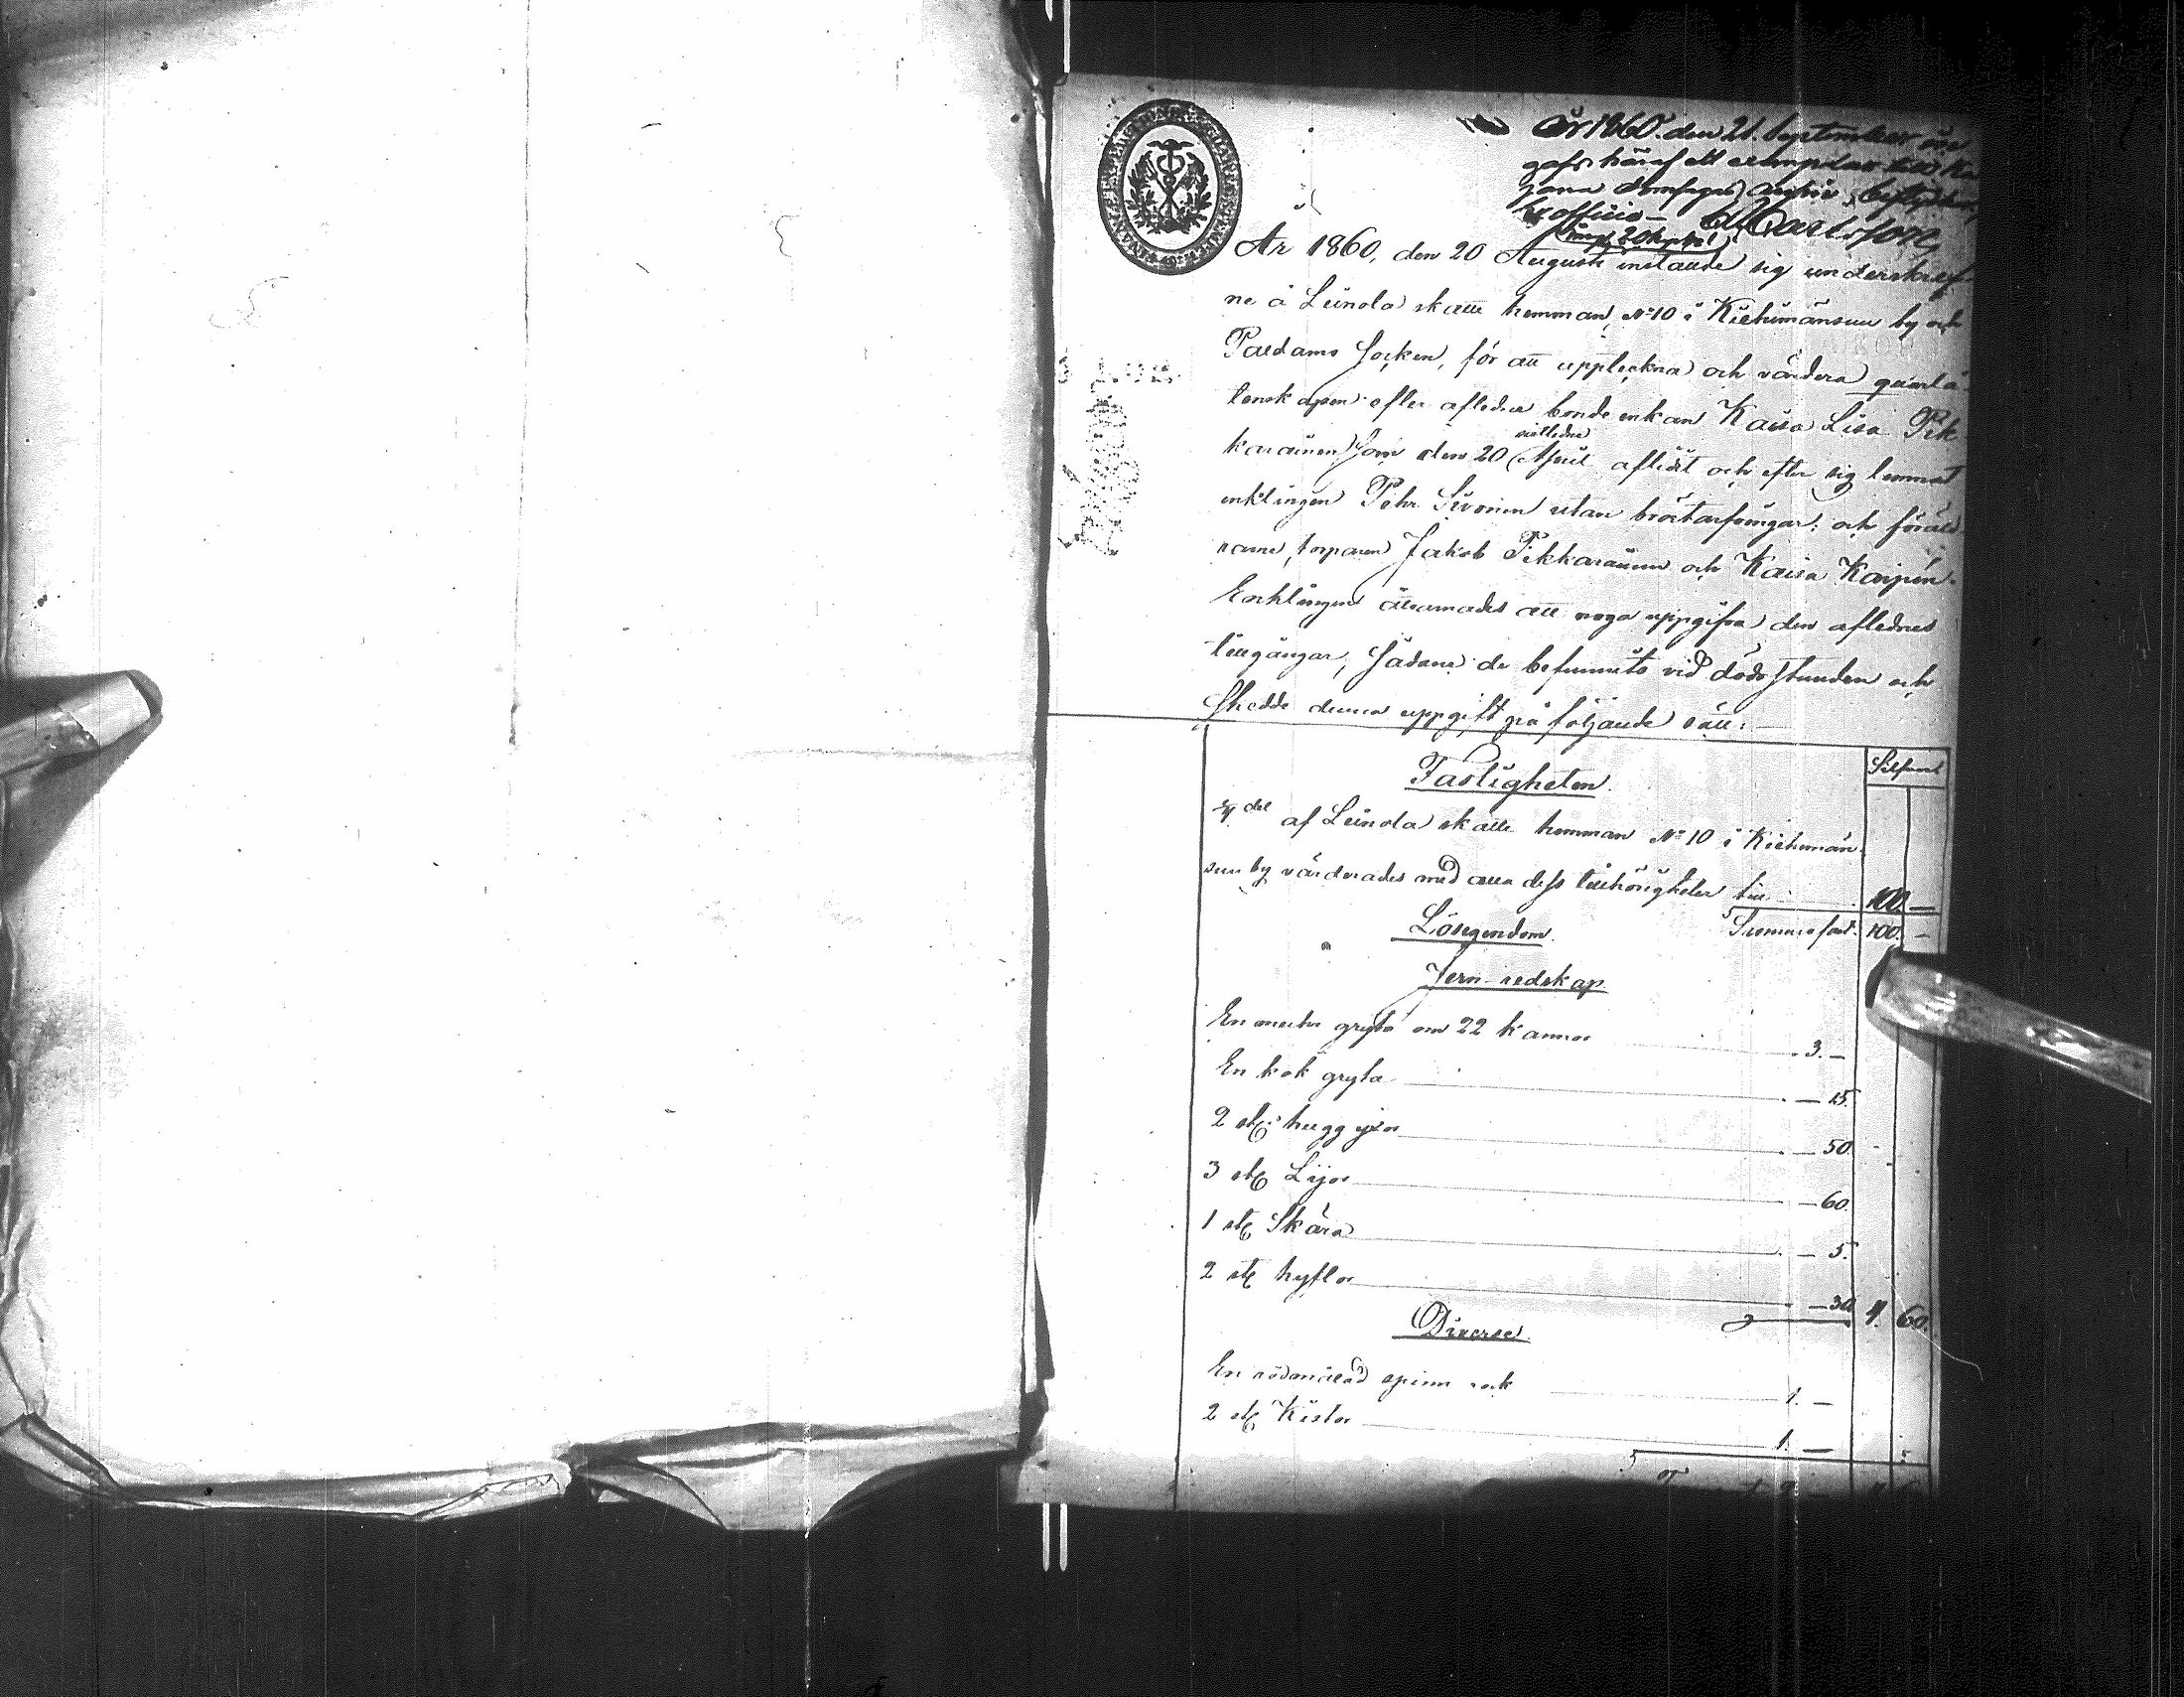 År 1860. den 21. September öfver
gafs häraf ett exemplar till Ka
jana domsagas Arghiv, betyder
Ex officio — Carlsson
År 1860, den 20 Augusti instälde sig underskref
ne å Leinola skatte hemman, No 10 i Kiehimänsuu by och
Paldamo Socken, för att uppteckna och värdera qvarlå
tenskapen efter aflidne bonde enkan Kaisa Lisa Pik
karainen som den 20 sistledne April aflidit och efter sig lemnat
enklingen Pehr Sivonen utan bröstarfvingar, och föräld
rarne, torparen Jakob Pikkarainen och Kaisa Karpin.
Enklingen åtvarnades att noga uppgifva den aflednes
tillgångar, sådane de befunnits vid dödsstunden och
skedde denna uppgift på följande sätt:
Silfver
Fastigheten.
del af Leinola skatte hemman No 10 i Kiehimän
suu by värderades med alla dess tillhörigheter till 100. —
Summa 100. —
Lösegendom.
Jern-redskap.
En gryta om 22 kannor 3. —
En kok gryta — 15.
2 st. hugg yxor — 50.
3 st. Lijor — 60.
1 st. Skära — 5.
2 st. hyflor — 30 4. 60.
Diverse.
En rödmålad spinn rock 1. —
2 st. Kistor 1. —